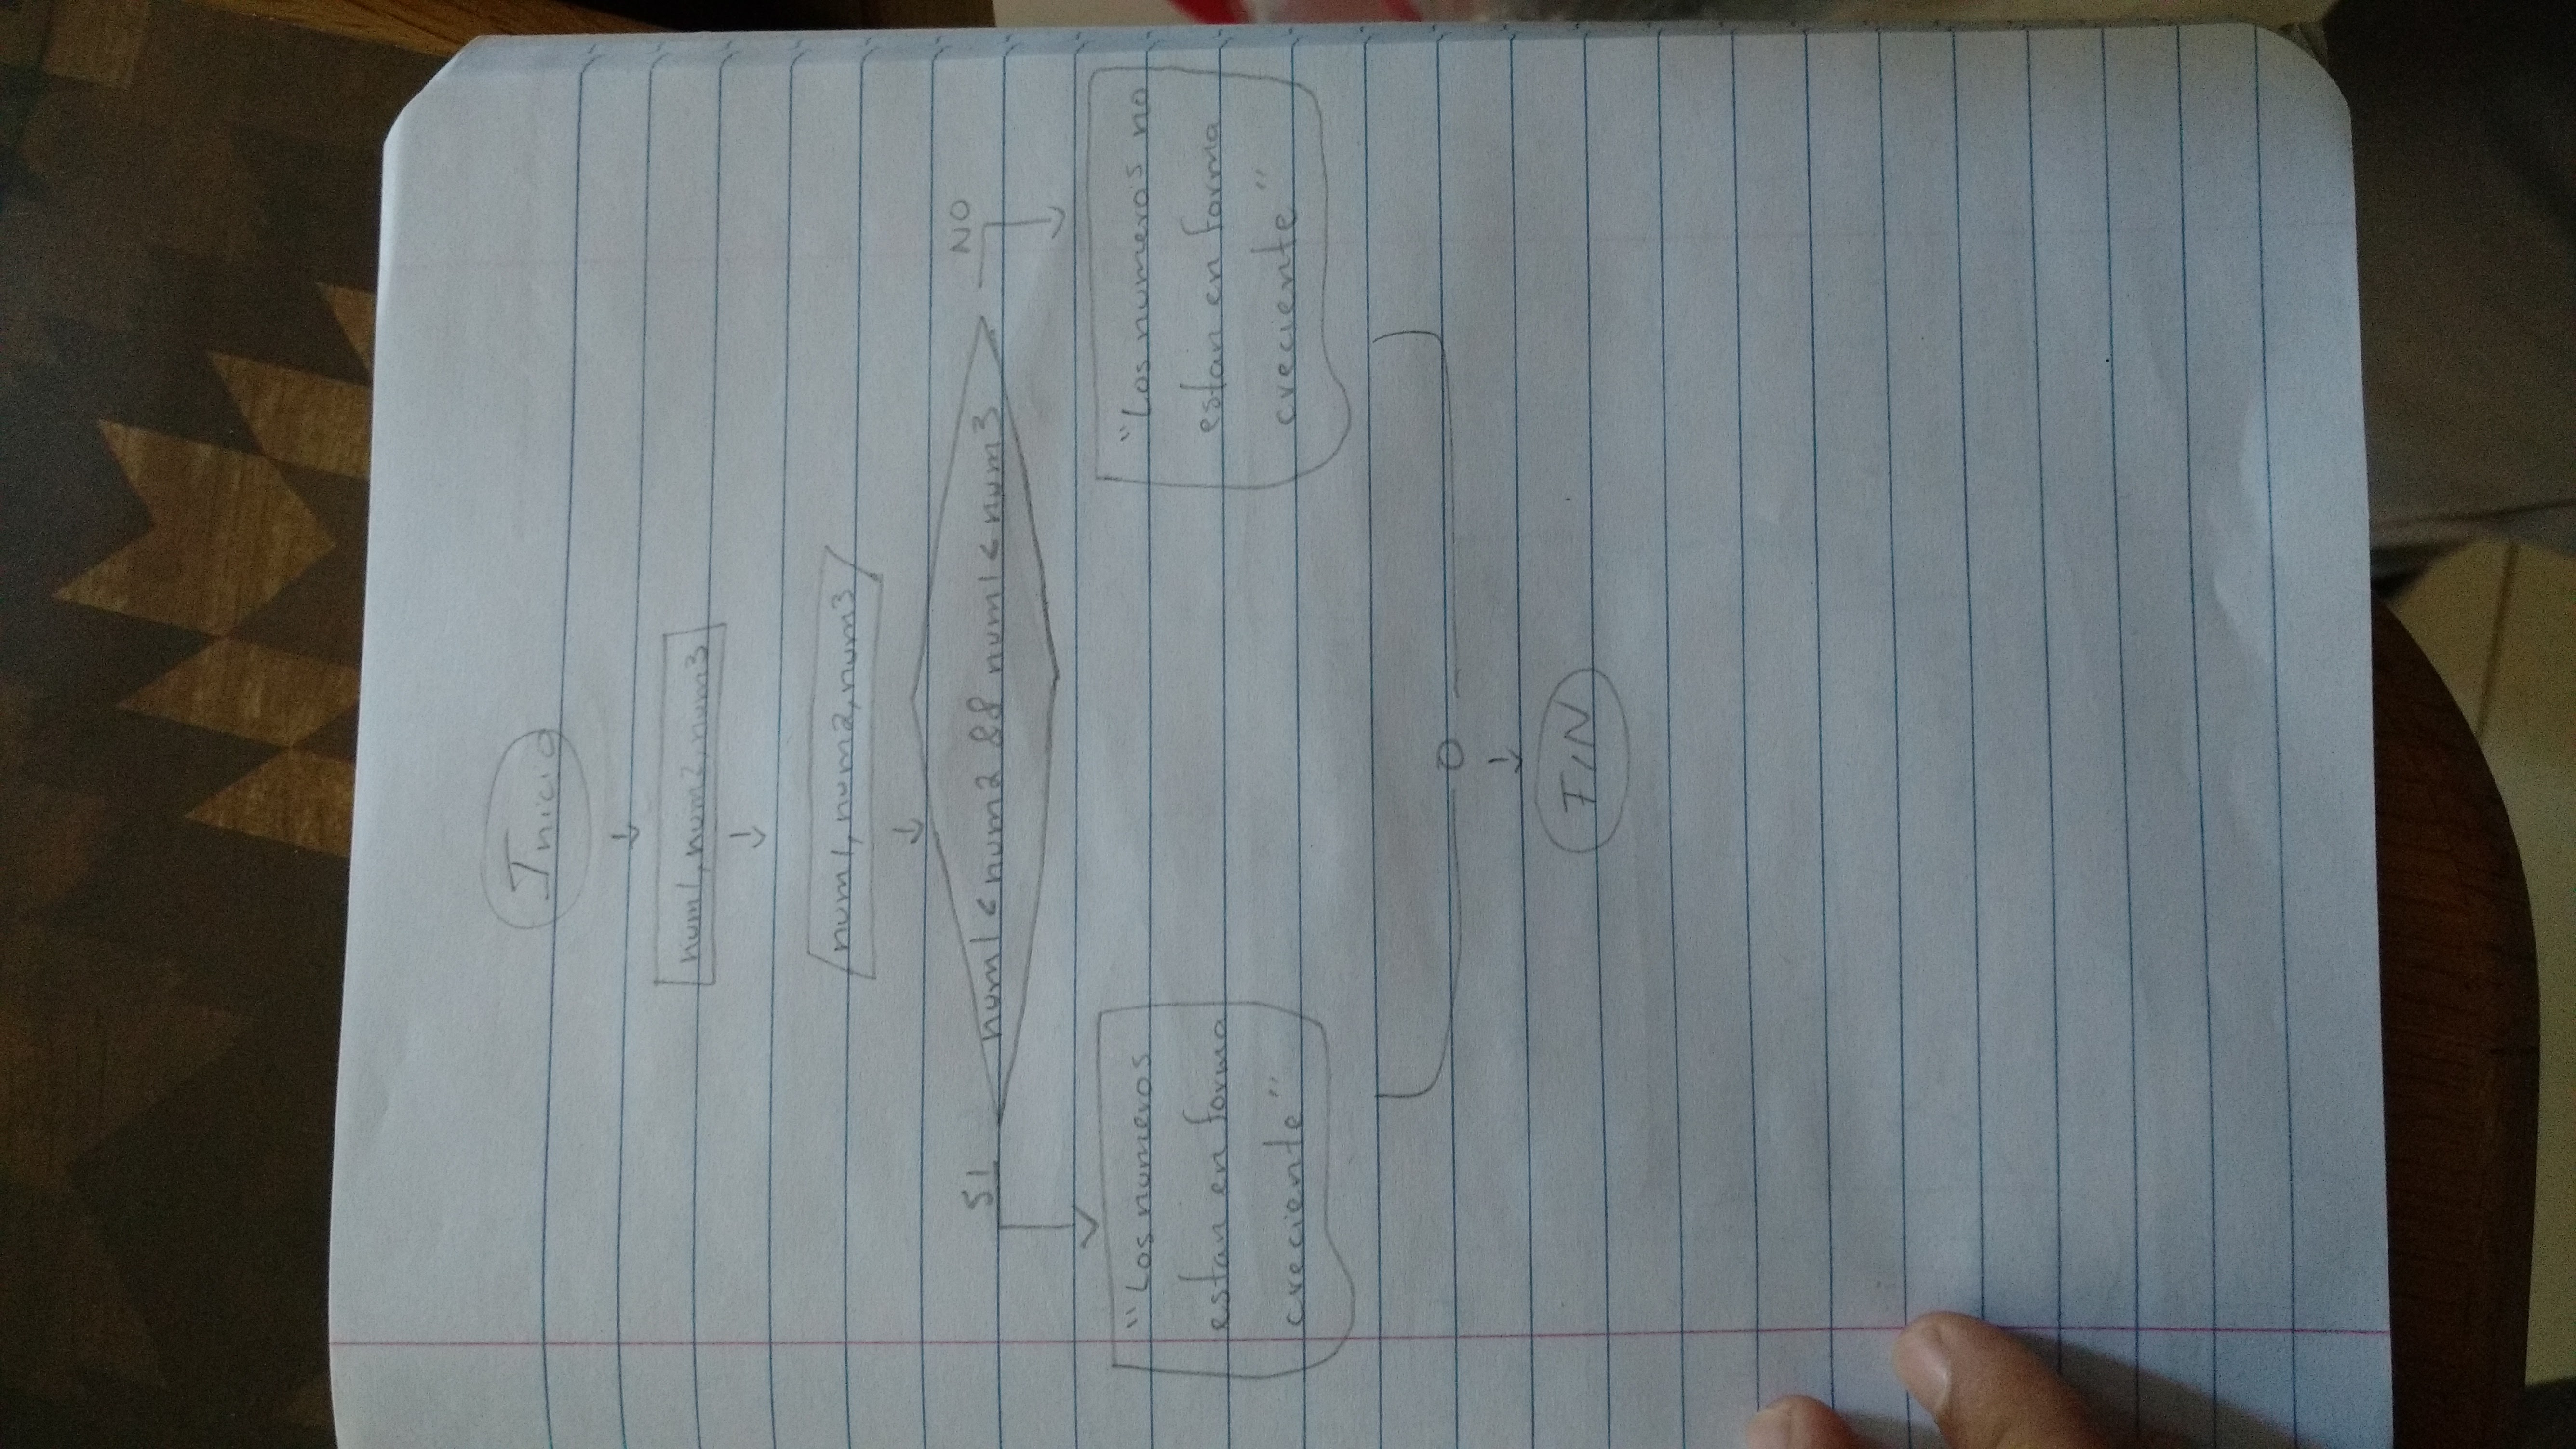 Inicio
num1, num2, num3
num1, num2, num3
num1 < num2 && num1 < num3
SI
NO
"Los numeros
estan en forma
creciente"
"Los numeros no
estan en forma
creciente"
FIN